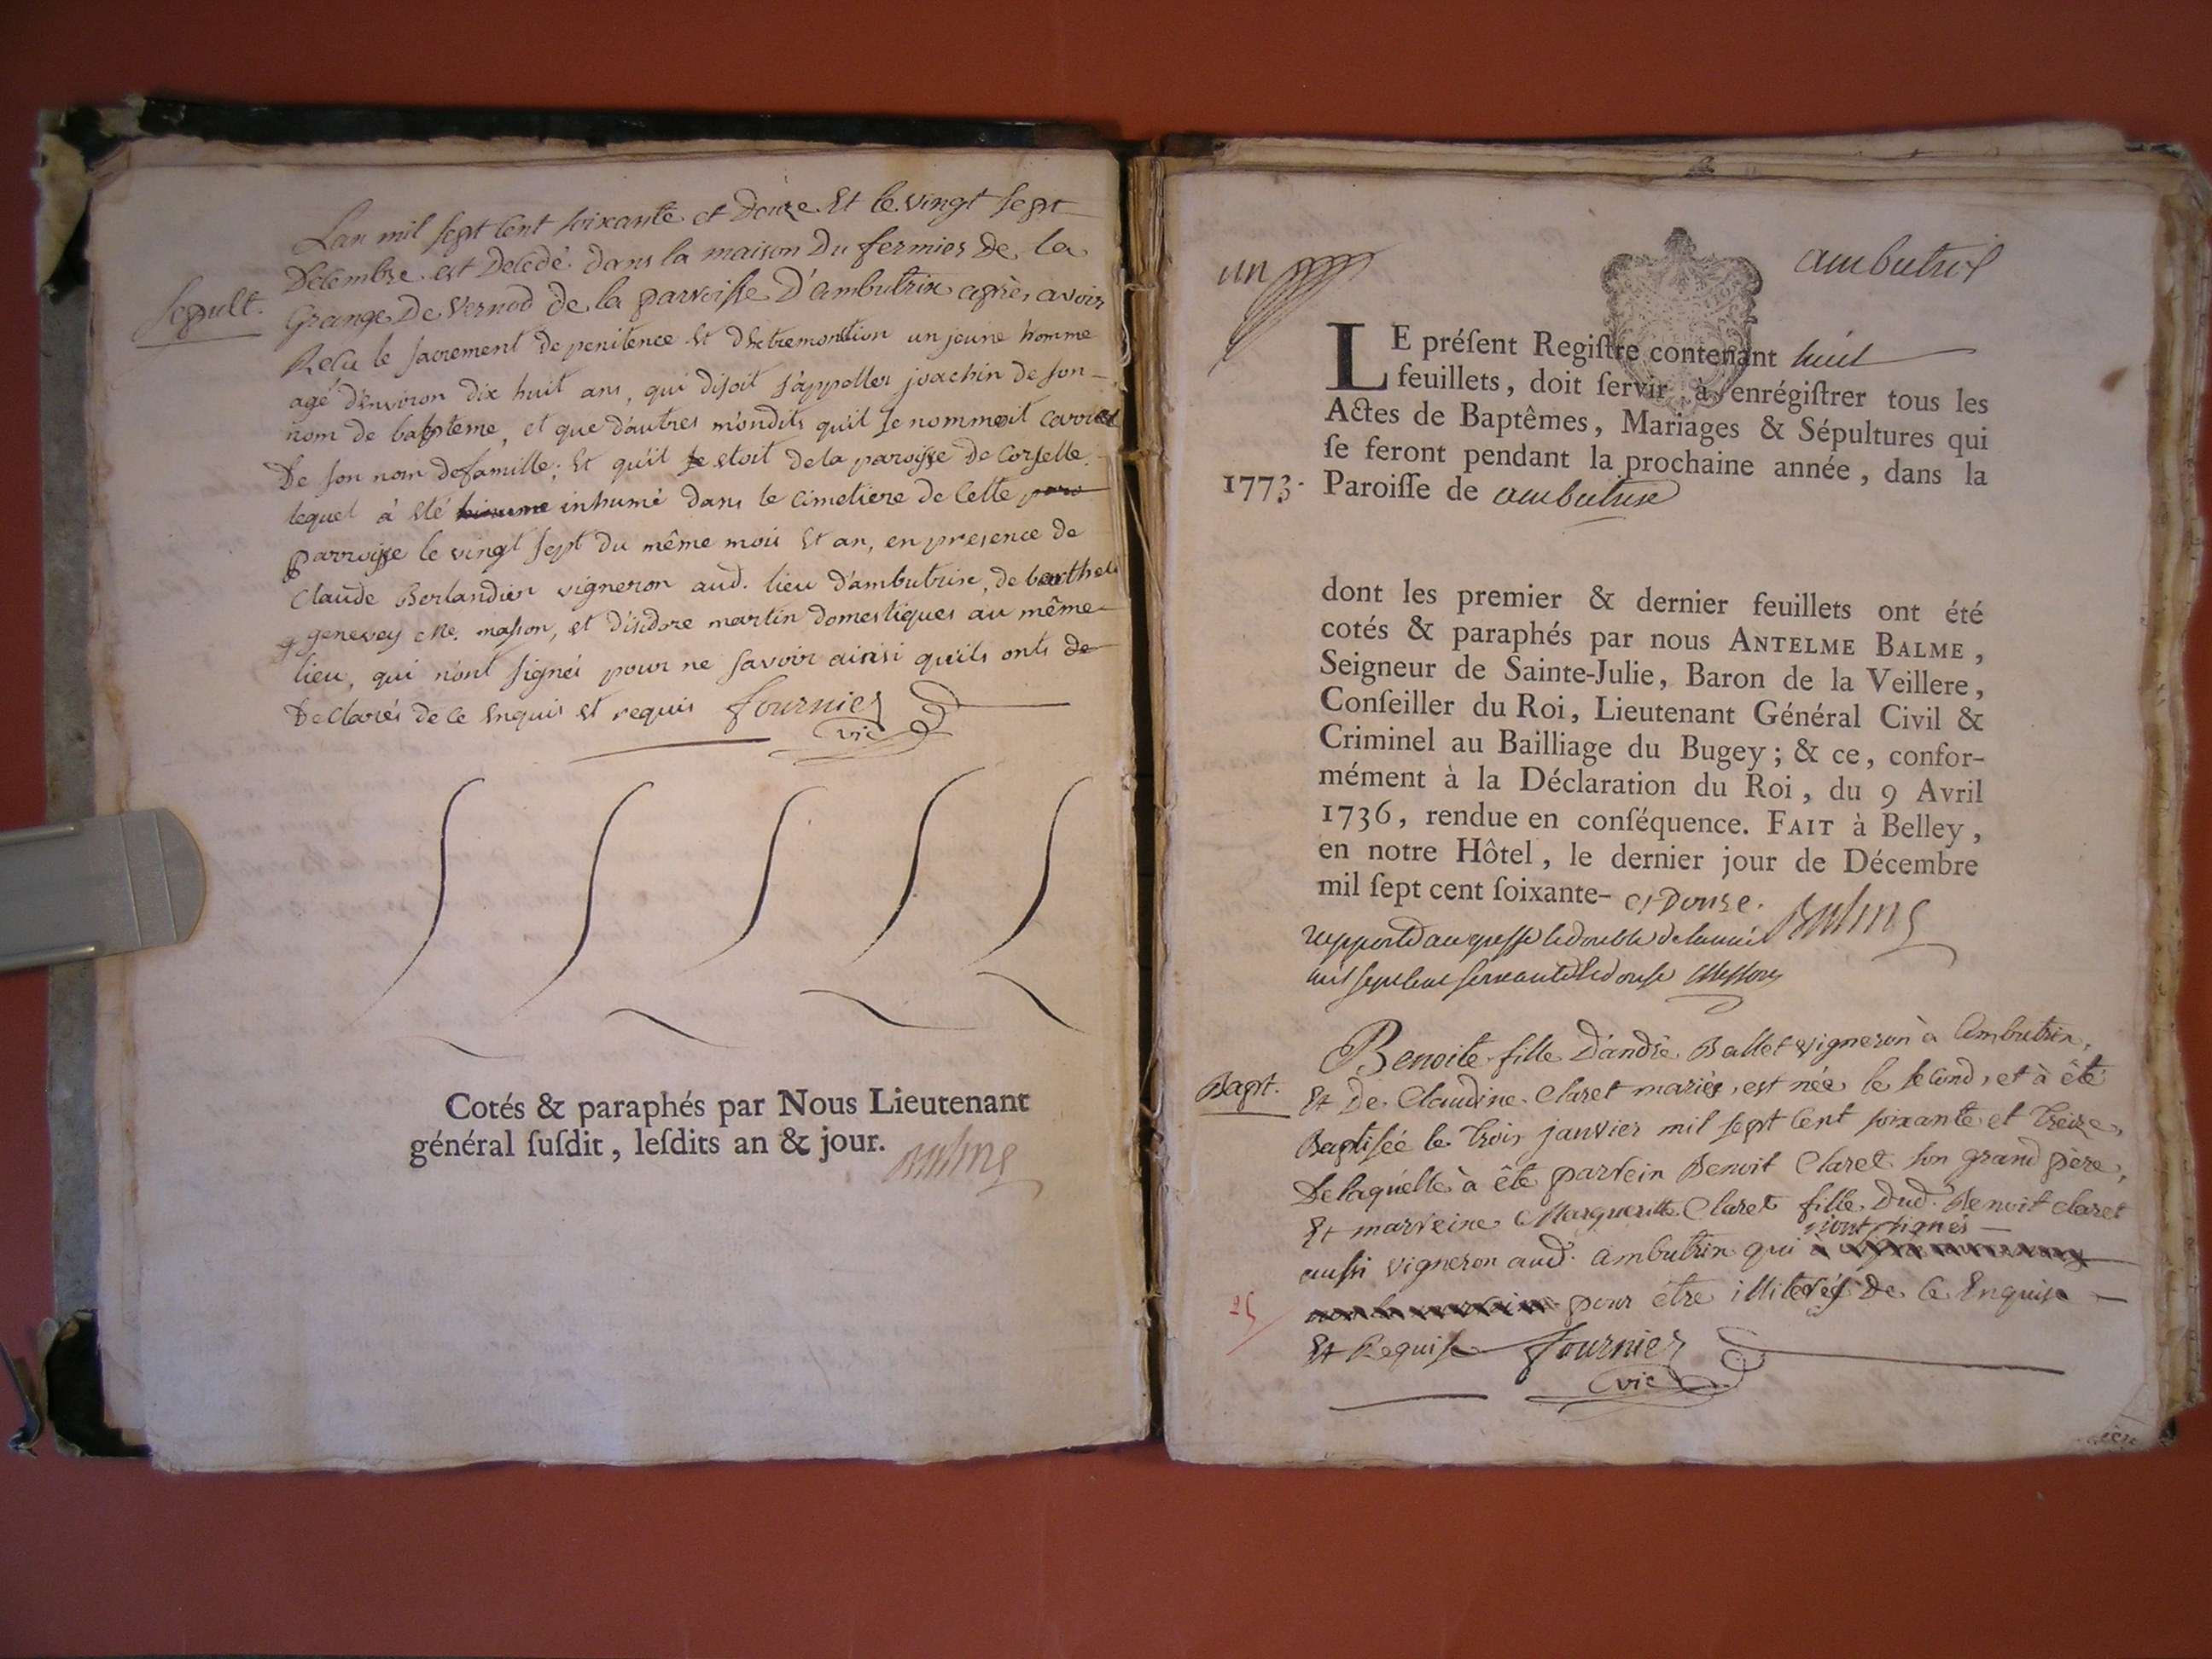 Sepult.
Lan mil sept Cent soixante et Douze Et le vingt sept
Décembre est Décédé dans la maison Du fermier De la
Grange De Vernod de la parroisse D'ambutrix après avoir
Recu le sacrement de penitence Et un jeune homme
agé d'environ dix huit ans, qui disoit s'appeller joachin de son
nom de bapteme, et que d'autres m'ondits qu'il se nommoit
De son nom de famille; Et qu'il se etoit de la paroisse de Corselle.
lequel à eté inhumé dans le cimetiere de Cette paro
parroisse le vingt sept du même mois Et an, en presence de
Claude Berlandier vigneron aud. lieu d'ambutrix, de
genevey Me. masson, et d'isidore martin domestiques au même
lieu, qui n'ont signés pour ne savoir ainsi qu'ils onts de
Declarés de ce Enquis et requis fournier
vic
Cotés & paraphés par Nous Lieutenant
général ſuſdit, leſdits an & jour.
Balme
un
ambutrix
LE préſent Regiſtre contenant huit
feuillets, doit ſervir à enrégiſtrer tous les
Actes de Baptêmes, Mariages & Sépultures qui
ſe feront pendant la prochaine année, dans la
1773. Paroiſſe de ambutrix
dont les premier & dernier feuillets ont été
cotés & paraphés par nous ANTELME BALME,
Seigneur de Sainte-Julie, Baron de la Veillere,
Conſeiller du Roi, Lieutenant Général Civil &
Criminel au Bailliage du Bugey; & ce, confor-
mément à la Déclaration du Roi, du 9 Avril
1736, rendue en conſéquence. FAIT à Belley,
en notre Hôtel, le dernier jour de Décembre
mil ſept cent ſoixante- et Douze. Balme
rapporté au greffe le double de lannée
mil sept cent soixante et douse
Bapt.
Benoite fille D'andré Ballet vigneron à Ambutrix,
Et De Claudine Claret mariés, est née le second, et à été
Baptisée le trois janvier mil sept Cent soixante et treize,
De laquelle à été parrein Benoit Claret son grand père,
Et marreine Marguerite Claret fille Dud. Benoit Claret
n'ont signés
aussi vigneron aud. ambutrix qui
pour être illiterés De ce Enquise
25
Et Requise fournier
vic